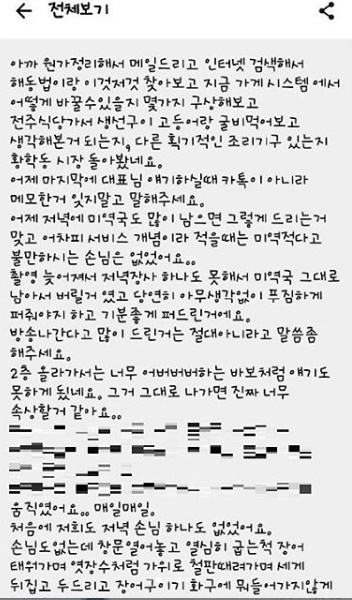 전체보기
아까 뭔가정리해서 메일드리고 인터넷 검색해서
해동법이랑 이것저것 찾아보고 지금 가게시스템에서
어떻게 바꿀수있을지 몇가지 구상해보고
전주식당가서 생선구이 고등어랑 굴비먹어보고
생각해본거 되는지, 다른 획기적인 조리기구 있는지
황학동 시장 돌아봤네요.
어제 마지막에 대표님 얘기하실때 카톡이 아니라
메모한거 잊지말고 말해주세요.
어제 저녁에 미역국도 많이 남으면 그렇게 드리는거
맞고 어차피 서비스 개념이라 적을때는 미역적다고
불만하시는 손님은 없었어요..
촬영 늦어져서 저녁장사 하나도 못해서 미역국 그대로
남아서 버릴거 였고 당연히 아무생각없이 푸짐하게
퍼줘야지 하고 기분좋게 퍼드린거에요.
방송나간다고 많이 드린거는 절대아니라고 말씀좀
해주세요.
2층 올라가서는 너무 어버버버하는 바보처럼 얘기도
못하게 됬네요. 그거 그대로 나가면 진짜 너무
속상할거 같아요..
움직였어요.. 매일매일.
처음에 저희도 저녁 손님 하나도 없었어요.
손님도없는데 창문열어놓고 열심히 굽는척 장어
태워가며 엿장수처럼 가위로 철판때려가며 세게
뒤집고 두드리고 장어구이기 화구에 뭐들어가지않게